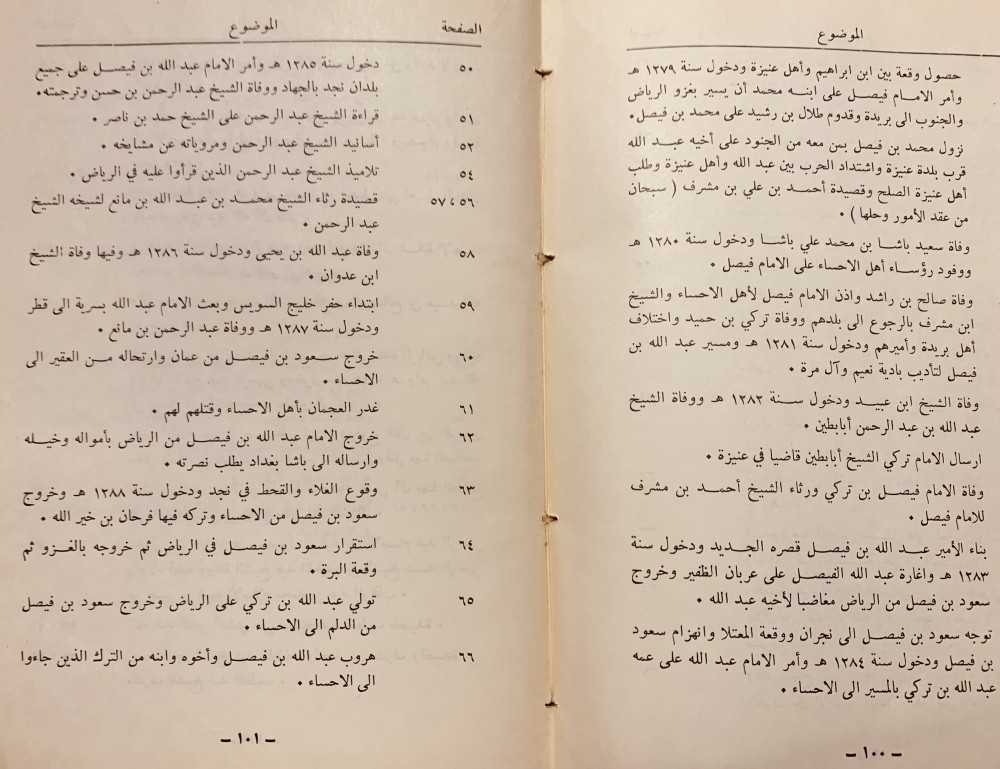 الموضوع
حصول وقعة بين ابن ابراهيم وأهل عنيزة ودخول سنة ١٢٧٩ هـ
وأمر الامام فيصل على ابنه محمد أن يسير بغزو الرياض
والجنوب الى بريدة وقدوم طلال بن رشيد على محمد بن فيصل.
نزول محمد بن فيصل بمن معه من الجنود على أخيه عبد الله
قرب بلدة عنيزة واشتداد الحرب بين عبد الله وأهل عنيزة وطلب
أهل عنيزة الصلح وقصيدة أحمد بن علي بن مشرف ( سبحان
من عقد الأمور وحلها ) .
وفاة سعيد باشا بن محمد علي باشا ودخول سنة ١٢٨٠ هـ
ووفود رؤساء أهل الاحساء على الامام فيصل .
وفاة صالح بن راشد واذن الامام فيصل لأهل الاحساء والشيخ
ابن مشرف بالرجوع الى بلدهم ووفاة تركي بن حميد واختلاف
أهل بريدة وأميرهم ودخول سنة ١٢٨١ هـ ومسير عبد الله بن
فيصل لتأديب بادية نعيم وآل مرة .
وفاة الشيخ ابن عبيد ودخول سنة ١٢٨٢ هـ ووفاة الشيخ
عبد الله بن عبد الرحمن أبابطين .
ارسال الامام تركي الشيخ أبابطين قاضيا في عنيزة .
وفاة الامام فيصل بن تركي ورثاء الشيخ أحمد بن مشرف
للامام فيصل .
بناء الأمير عبد الله بن فيصل قصره الجديد ودخول سنة
١٢٨٣ هـ واغارة عبد الله الفيصل على عربان الظفير وخروج
سعود بن فيصل من الرياض مغاضبا لأخيه عبد الله .
توجه سعود بن فيصل الى نجران ووقعة المعتلا وانهزام سعود
بن فيصل ودخول سنة ١٢٨٤ هـ وأمر الامام عبد الله على عمه
عبد الله بن تركي بالمسير الى الاحساء .
– ١٠٠ –
الصفحة الموضوع
٥٠ دخول سنة ١٢٨٥ هـ وأمر الامام عبد الله بن فيصل على جميع
بلدان نجد بالجهاد ووفاة الشيخ عبد الرحمن بن حسن وترجمته.
٥١ قراءة الشيخ عبد الرحمن على الشيخ حمد بن ناصر .
٥٢ أسانيد الشيخ عبد الرحمن ومروياته عن مشايخه .
٥٤ تلاميذ الشيخ عبد الرحمن الذين قرأوا عليه في الرياض .
٥٦ ، ٥٧ قصيدة رثاء الشيخ محمد بن عبد الله بن مانع لشيخه الشيخ
عبد الرحمن .
٥٨ وفاة عبد الله بن يحيى ودخول سنة ١٢٨٦ هـ وفيها وفاة الشيخ
ابن عدوان .
٥٩ ابتداء حفر خليج السويس وبعث الامام عبد الله بسرية الى قطر
ودخول سنة ١٢٨٧ هـ ووفاة عبد الرحمن بن مانع .
٦٠ خروج سعود بن فيصل من عمان وارتحاله من العقير الى
الاحساء .
٦١ غدر العجمان بأهل الاحساء وقتلهم لهم .
٦٢ خروج الامام عبد الله بن فيصل من الرياض بأمواله وخيله
وارساله الى باشا بغداد يطلب نصرته .
٦٣ وقوع الغلاء والقحط في نجد ودخول سنة ١٢٨٨ هـ وخروج
سعود بن فيصل من الاحساء وتركه فيها فرحان بن خير الله .
٦٤ استقرار سعود بن فيصل في الرياض ثم خروجه بالغزو ثم
وقعة البرة .
٦٥ تولي عبد الله بن تركي على الرياض وخروج سعود بن فيصل
من الدلم الى الاحساء .
٦٦ هروب عبد الله بن فيصل وأخوه وابنه من الترك الذين جاءوا
الى الاحساء .
– ١٠١ –